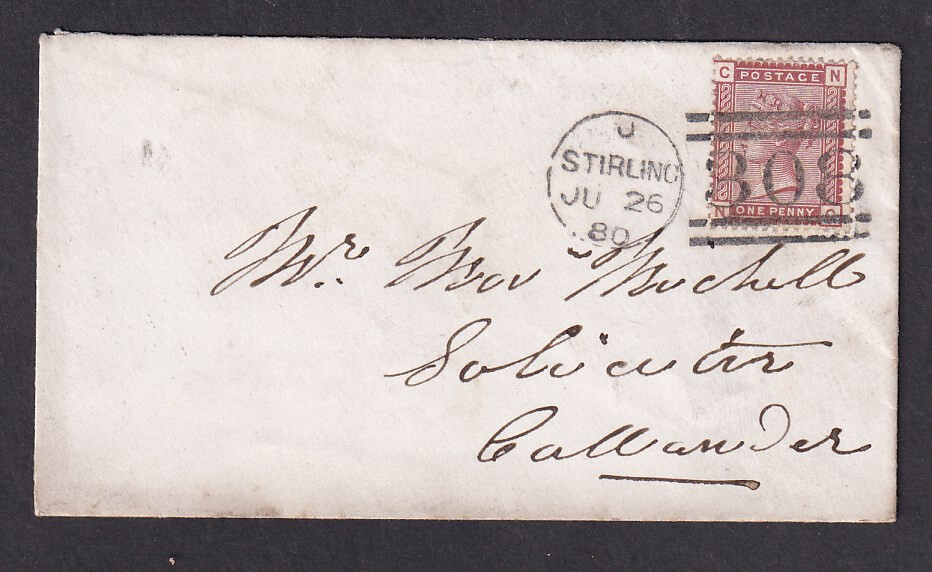 C POSTAGE N
J
STIRLING
JU 26
80
308
N ONE PENNY C
Mr. Mitchell
Solicitor
Callander